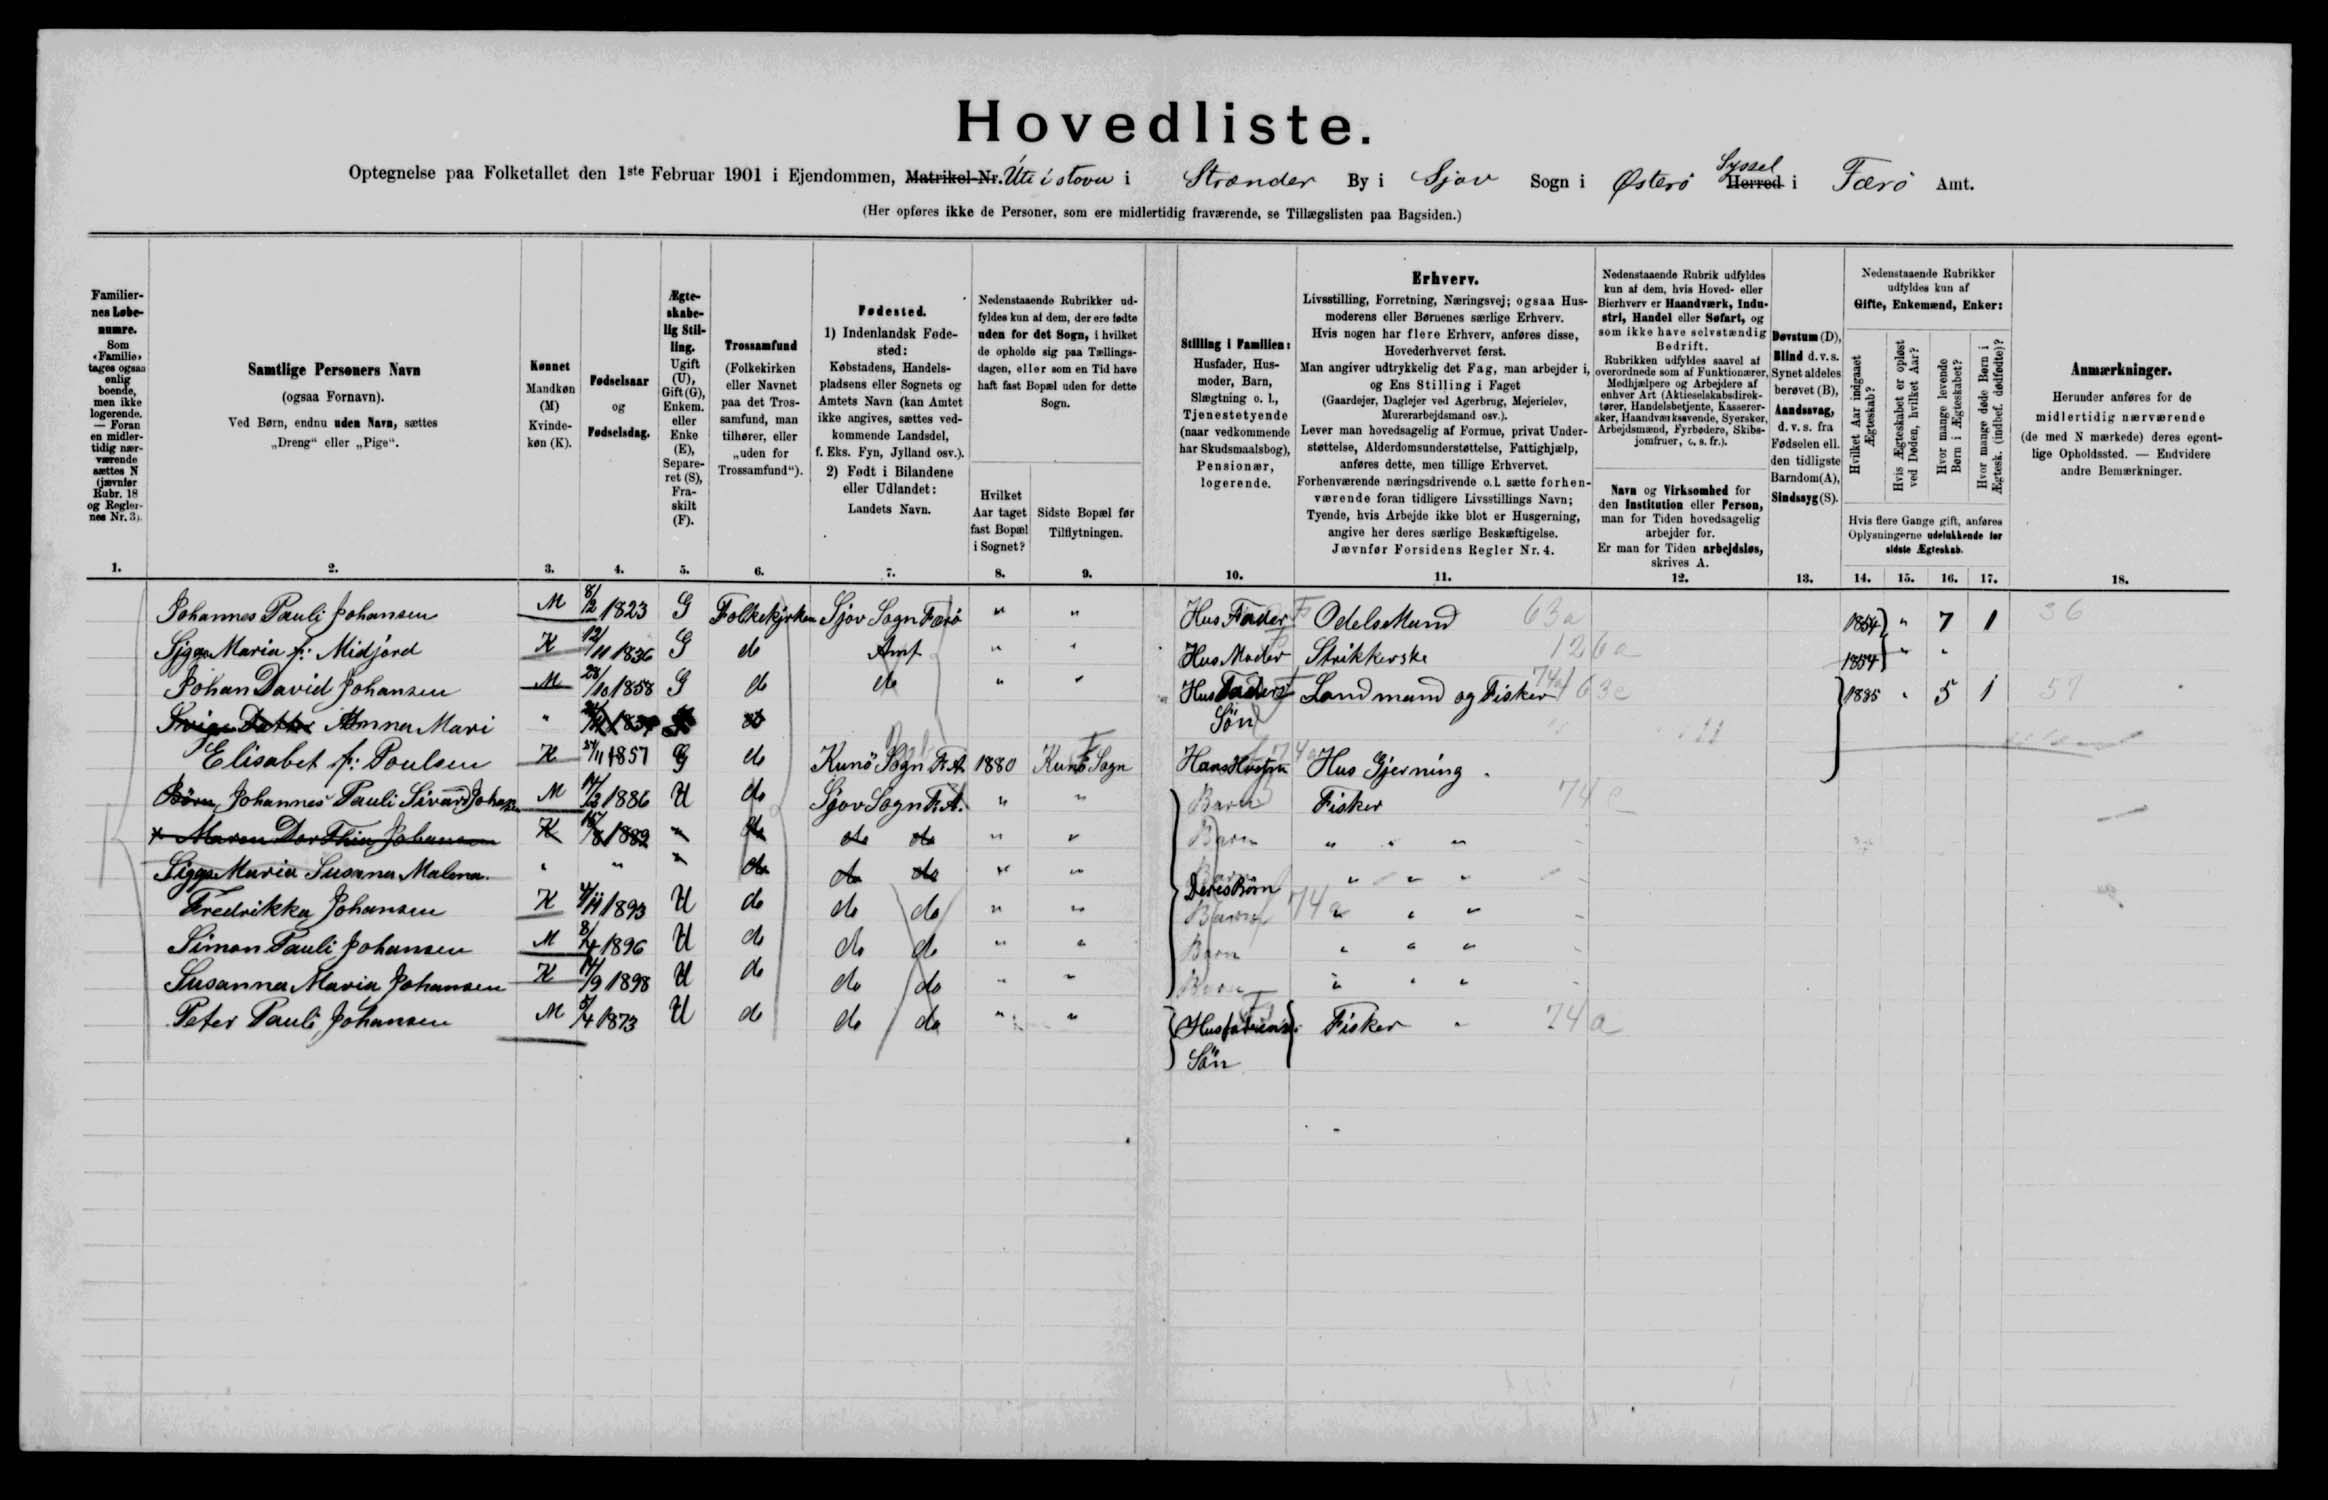 Hovedliste.
Optegnelse paa Folketallet den 1ste Februar 1901 i Ejendommen, Matrikel-Nr. Úti í stovu i Strænder By i Sjov Sogn i Østerö Herred Syssel i Færö Amt.
(Her opføres ikke de Personer, som ere midlertidig fraværende, se Tillægslisten paa Bagsiden.)
Familiernes Løbenumre.
Som «Familie» tages ogsaa enlig boende, men ikke logerende. — Foran en midlertidig nærværende sættes N (jævnfør Rubr. 18 og Reglernes Nr. 3).
Samtlige Personers Navn
(ogsaa Fornavn).
Ved Børn, endnu uden Navn, sættes
„Dreng“ eller „Pige“.
Kønnet
Mandkøn (M)
Kvindekøn (K).
Fødselsaar
og
Fødselsdag.
Ægteskabelig Stilling.
Ugift (U), Gift (G), Enkem. eller Enke (E), Separeret (S), Fraskilt (F).
Trossamfund
(Folkekirken eller Navnet paa det Trossamfund, man tilhører, eller „uden for Trossamfund“).
Fødested.
1) Indenlandsk Fødested:
Købstadens, Handelspladsens eller Sognets og Amtets Navn (kan Amtet ikke angives, sættes vedkommende Landsdel, f. Eks. Fyn, Jylland osv.).
2) Født i Bilandene eller Udlandet:
Landets Navn.
Nedenstaaende Rubrikker udfyldes kun af dem, der ere fødte uden for det Sogn, i hvilket de opholde sig paa Tællingsdagen, eller som en Tid have haft fast Bopæl uden for dette Sogn.
Hvilket Aar taget fast Bopæl i Sognet?
Sidste Bopæl før Tilflytningen.
Stilling i Familien:
Husfader, Husmoder, Barn, Slægtning o. l., Tjenestetyende (naar vedkommende har Skudsmaalsbog), Pensionær, logerende.
Erhverv.
Livsstilling, Forretning, Næringsvej; ogsaa Husmoderens eller Børnenes særlige Erhverv.
Hvis nogen har flere Erhverv, anføres disse, Hovederhvervet først.
Man angiver udtrykkelig det Fag, man arbejder i, og Ens Stilling i Faget
(Gaardejer, Daglejer ved Agerbrug, Mejerielev, Murerarbejdsmand osv.).
Lever man hovedsagelig af Formue, privat Understøttelse, Alderdomsunderstøttelse, Fattighjælp, anføres dette, men tillige Erhvervet.
Forhenværende næringsdrivende o.l. sætte forhenværende foran tidligere Livsstillings Navn;
Tyende, hvis Arbejde ikke blot er Husgerning, angive her deres særlige Beskæftigelse.
Jævnfør Forsidens Regler Nr. 4.
Nedenstaaende Rubrik udfyldes kun af dem, hvis Hoved- eller Bierhverv er Haandværk, Industri, Handel eller Søfart, og som ikke have selvstændig Bedrift.
Rubrikken udfyldes saavel af overordnede som af Funktionærer, Medhjælpere og Arbejdere af enhver Art (Aktieselskabsdirektører, Handelsbetjente, Kasserersker, Haandværkssvende, Syersker, Arbejdsmænd, Fyrbødere, Skibsjomfruer, o. s. fr.).
Navn og Virksomhed for den Institution eller Person, man for Tiden hovedsagelig arbejder for.
Er man for Tiden arbejdsløs, skrives A.
Døvstum (D), Blind d. v. s. Synet aldeles berøvet (B), Aandssvag, d. v. s. fra Fødselen ell. den tidligste Barndom (A), Sindssyg (S).
Nedenstaaende Rubrikker udfyldes kun af
Gifte, Enkemænd, Enker:
Hvilket Aar indgaaet Ægteskab?
Hvis Ægteskabet er opløst ved Døden, hvilket Aar?
Hvor mange levende Børn i Ægteskabet?
Hvor mange døde Børn i Ægtesk. (indbef. dødfødte)?
Hvis flere Gange gift, anføres Oplysningerne udelukkende for sidste Ægteskab.
Anmærkninger.
Herunder anføres for de midlertidig nærværende (de med N mærkede) deres egentlige Opholdssted. — Endvidere andre Bemærkninger.
1. 2. 3. 4. 5. 6. 7. 8. 9. 10. 11. 12. 13. 14. 15. 16. 17. 18.
Johannes Pauli Johansen M 8/2 1823 G Folkekjrken Sjov Sogn Færö " " Hus Fader Odels Mand 63a 1854 " 7 1 36
Sigga Maria f: Midjord K 12/11 1836 G do Amt " " Hus Moder Strikkerske 126a 1854 " "
Johan David Johansen M 28/10 1858 G do do " " Hus Faders Søn Landmand og Fisker 74a 63c 1885 " 5 1 57
Anna Mari
Elisabet f: Poulsen K 24/11 1857 G do Kunö Sogn F.A. 1880 Kunö Sogn Hans Hustru Hus Gjerning
Børn Johannes Pauli Sivard Johansen M 14/12 1886 U do Sjov Sogn F.A. " " Barn Fisker 74a
Maren Dorthia Johansen K 15/8 1889 " do do do " " Barn " " "
Sigga Maria Susanna Malena " " " do do do " " Barn " " "
Deres Børn
Fredrikka Johansen K 4/11 1893 U do do do " " Barn 74a " " "
Simon Pauli Johansen M 8/4 1896 U do do do " " Barn " " "
Susanna Maria Johansen K 14/9 1898 U do do do " " Barn " " "
Peter Pauli Johansen M 5/4 1873 U do do do " " Husfaderens Søn Fisker " 74a